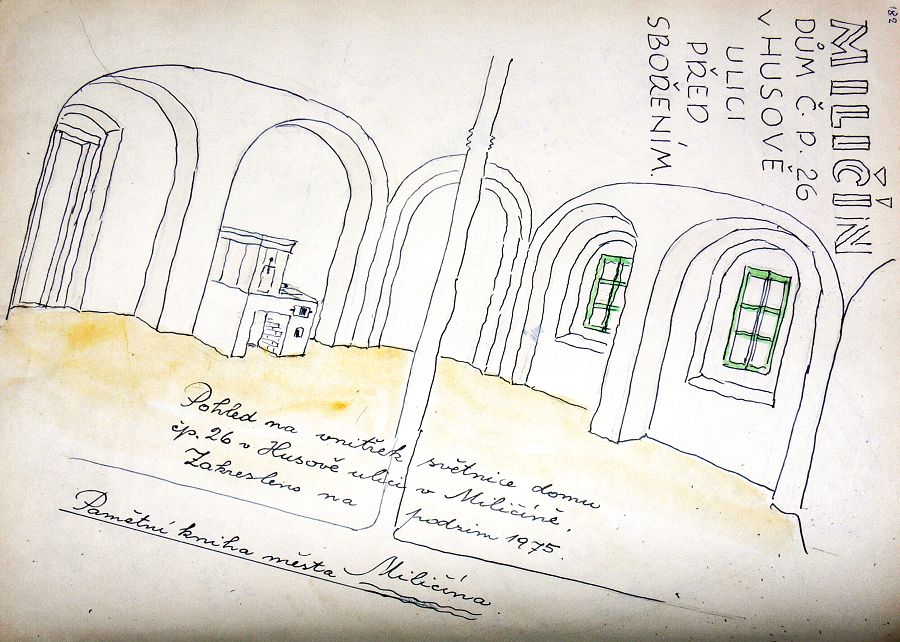 182
MILIČÍN
DŮM Č. P. 26
V HUSOVĚ
ULICI
PŘED
SBOŘENÍM
Pohled na vnitřek světnice domu
čp. 26 v Husově ulici v Miličíně,
Zakresleno na podzim 1975.
Pamětní kniha města Miličína.